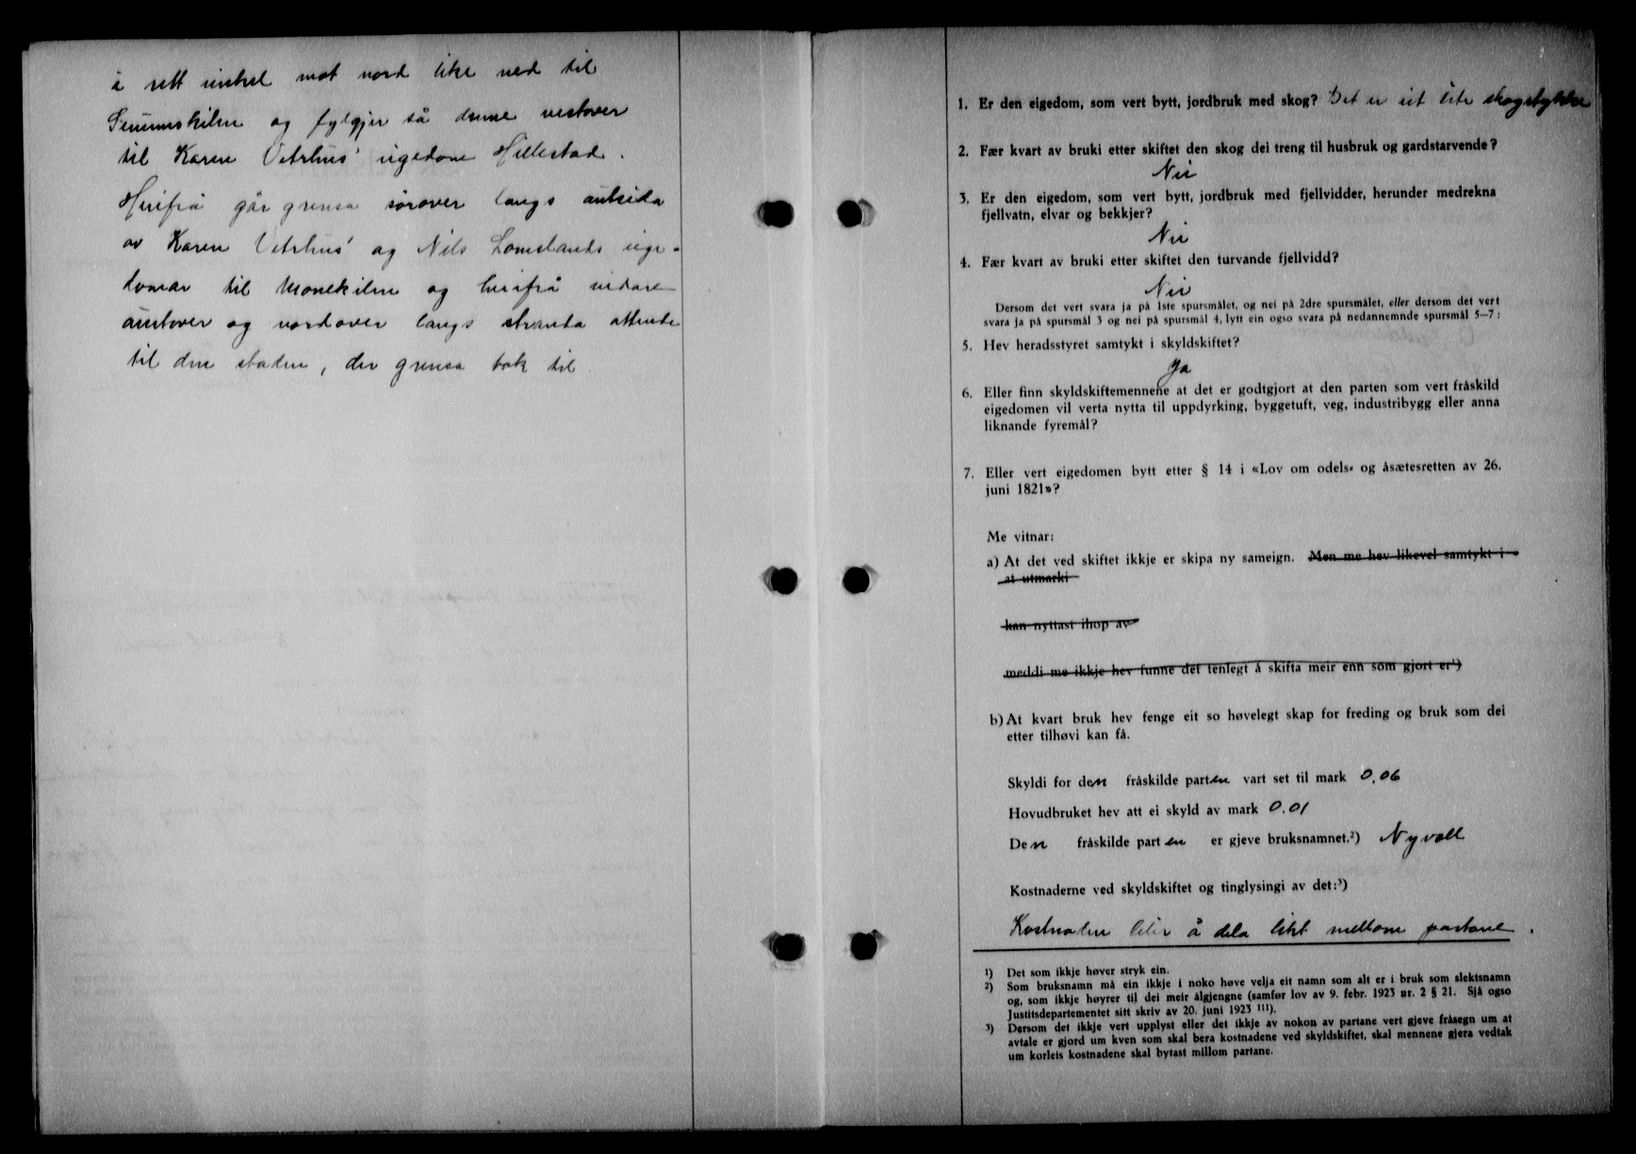 i rett vinkel mot nord like ned til
og fylgjer så denne vestover
til Karen Vetrhus' eigedom Hillestad.
Herifrå går grensa sørover langs austsida
av Karen Vetrhus' og Nils Lomelands eige-
domar til Monekilen og herifrå vidare
austover og nordover langs stranda attende
til den staden, der grensa tok til.
1. Er den eigedom, som vert bytt, jordbruk med skog? Det er eit lite skogstykke
2. Fær kvart av bruki etter skiftet den skog dei treng til husbruk og gardstarvende?
Nei
3. Er den eigedom, som vert bytt, jordbruk med fjellvidder, herunder medrekna
fjellvatn, elvar og bekkjer?
Nei
4. Fær kvart av bruki etter skiftet den turvande fjellvidd?
Nei
Dersom det vert svara ja på 1ste spursmålet, og nei på 2dre spursmålet, eller dersom det vert
svara ja på spursmål 3 og nei på spursmål 4, lyt ein ogso svara på nedannemnde spursmål 5—7:
5. Hev heradsstyret samtykt i skyldskiftet?
Ja
6. Eller finn skyldskiftemennene at det er godtgjort at den parten som vert fråskild
eigedomen vil verta nytta til uppdyrking, byggetuft, veg, industribygg eller anna
liknande fyremål?
7. Eller vert eigedomen bytt etter § 14 i «Lov om odels- og åsætesretten av 26.
juni 1821»?
Me vitnar:
a) At det ved skiftet ikkje er skipa ny sameign. Men me hev likevel samtykt i
at utmarki
kan nyttast ihop av
meddi me ikkje hev funne det tenlegt å skifta meir enn som gjort er¹)
b) At kvart bruk hev fenge eit so høvelegt skap for freding og bruk som dei
etter tilhøvi kan få.
Skyldi for den fråskilde parten vart set til mark 0.06
Hovudbruket hev att ei skyld av mark 0.01
Den fråskilde parten er gjeve bruksnamnet.²) Nyvoll
Kostnaderne ved skyldskiftet og tinglysingi av det:³)
Kostnaden blir å dela likt mellom partane.
1) Det som ikkje høver stryk ein.
2) Som bruksnamn må ein ikkje i noko høve velja eit namn som alt er i bruk som slektsnamn
og, som ikkje høyrer til dei meir ålgjengne (samfør lov av 9. febr. 1923 nr. 2 § 21. Sjå ogso
Justitsdepartementet sitt skriv av 20. juni 1923 111).
3) Dersom det ikkje vert upplyst eller det ikkje av nokon av partane vert gjeve fråsegn um at
avtale er gjord um kven som skal bera kostnadene ved skyldskiftet, skal mennene gjera vedtak
um korleis kostnadene skal bytast millom partane.